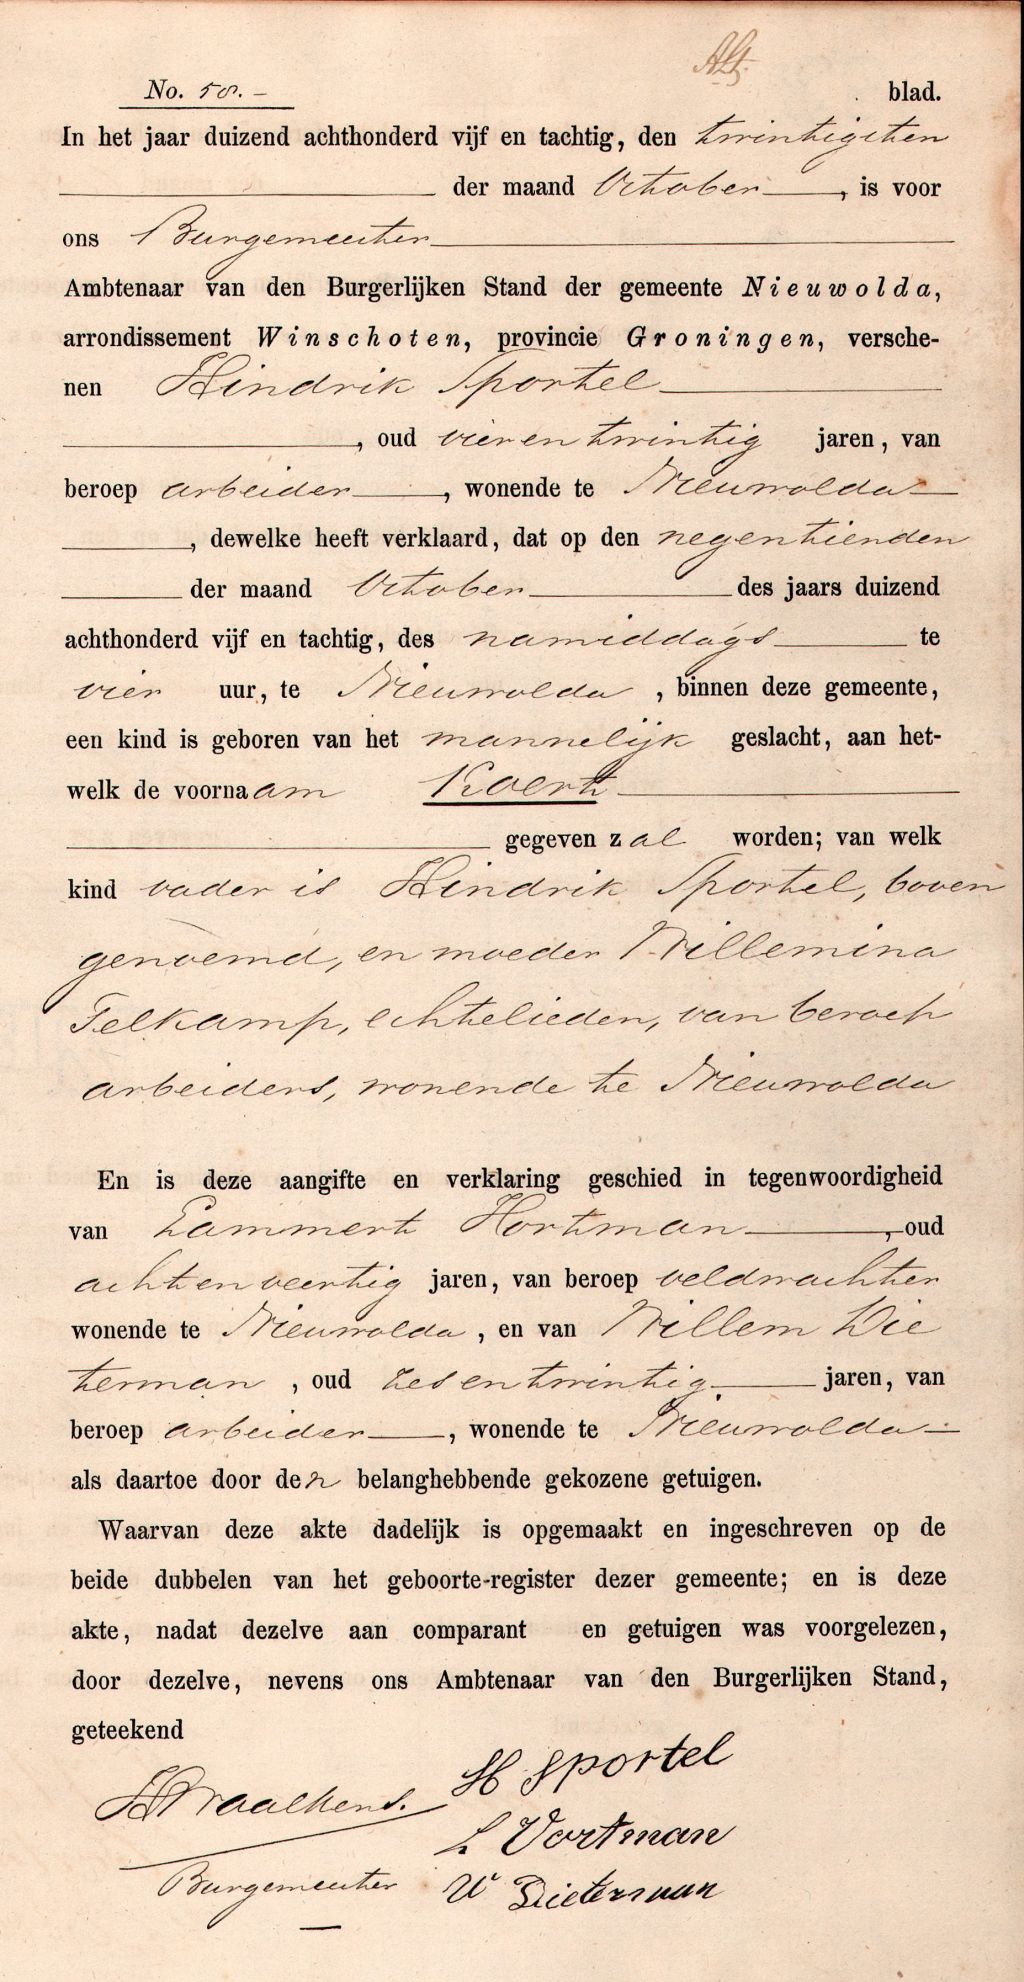 No. 58. - blad.
In het jaar duizend achthonderd vijf en tachtig, den twintigsten
der maand October, is voor
ons Burgemeester
Ambtenaar van den Burgerlijken Stand der gemeente Nieuwolda,
arrondissement Winschoten, provincie Groningen, versche-
nen Hindrik Sportel
, oud vier en twintig jaren, van
beroep arbeider, wonende te Nieuwolda
, dewelke heeft verklaard, dat op den negentienden
der maand October des jaars duizend
achthonderd vijf en tachtig, des namiddags te
vier uur, te Nieuwolda, binnen deze gemeente,
een kind is geboren van het mannelijk geslacht, aan het-
welk de voornaam Koert
gegeven zal worden; van welk
kind vader is Hindrik Sportel, boven
genoemd, en moeder Willemina
Telkamp, echtelieden, van beroep
arbeiders, wonende te Nieuwolda
En is deze aangifte en verklaring geschied in tegenwoordigheid
van Lammert Hortman, oud
acht en veertig jaren, van beroep veldwachter
wonende te Nieuwolda, en van Willem Die
terman, oud zes en twintig jaren, van
beroep arbeider, wonende te Nieuwolda
als daartoe door den belanghebbende gekozene getuigen.
Waarvan deze akte dadelijk is opgemaakt en ingeschreven op de
beide dubbelen van het geboorte-register dezer gemeente; en is deze
akte, nadat dezelve aan comparant en getuigen was voorgelezen,
door dezelve, nevens ons Ambtenaar van den Burgerlijken Stand,
geteekend
H Sportel
L Vortman
Burgemeester W Dieterman